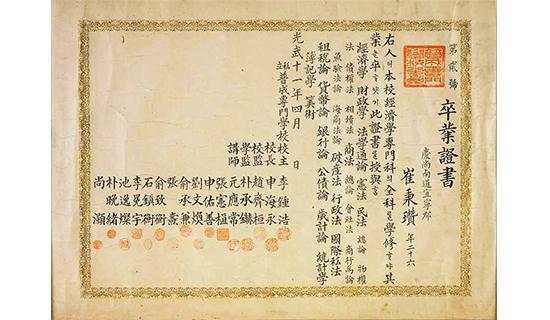 第貮號
卒業證書
慶尚南道宜寧郡
崔秉瓚 年二十六
右人이本校經濟學專門科의全科를學修하야其
業을卒하얏기此證書를授與홈
經濟學 財政學 法學通論 憲法 民法 總論 物權
法 債權法 相續法 商法 總論 會社法 商行爲論
海商法論 破産法 行政法 國際私法
租稅論 貨幣論 銀行論 公債論 歲計論 統計學
簿記學 算術
光武十一年四月 日
私立普成專門學校校主 李鍾浩
校長 申海永
校監 趙齊桓
學監 朴承
講師 元應常
張憲植
申佑善
劉文煥
俞承兼
張燾
俞致衡
石鎭衡
李冕宇
池逸燦
朴晩緖
尚灝